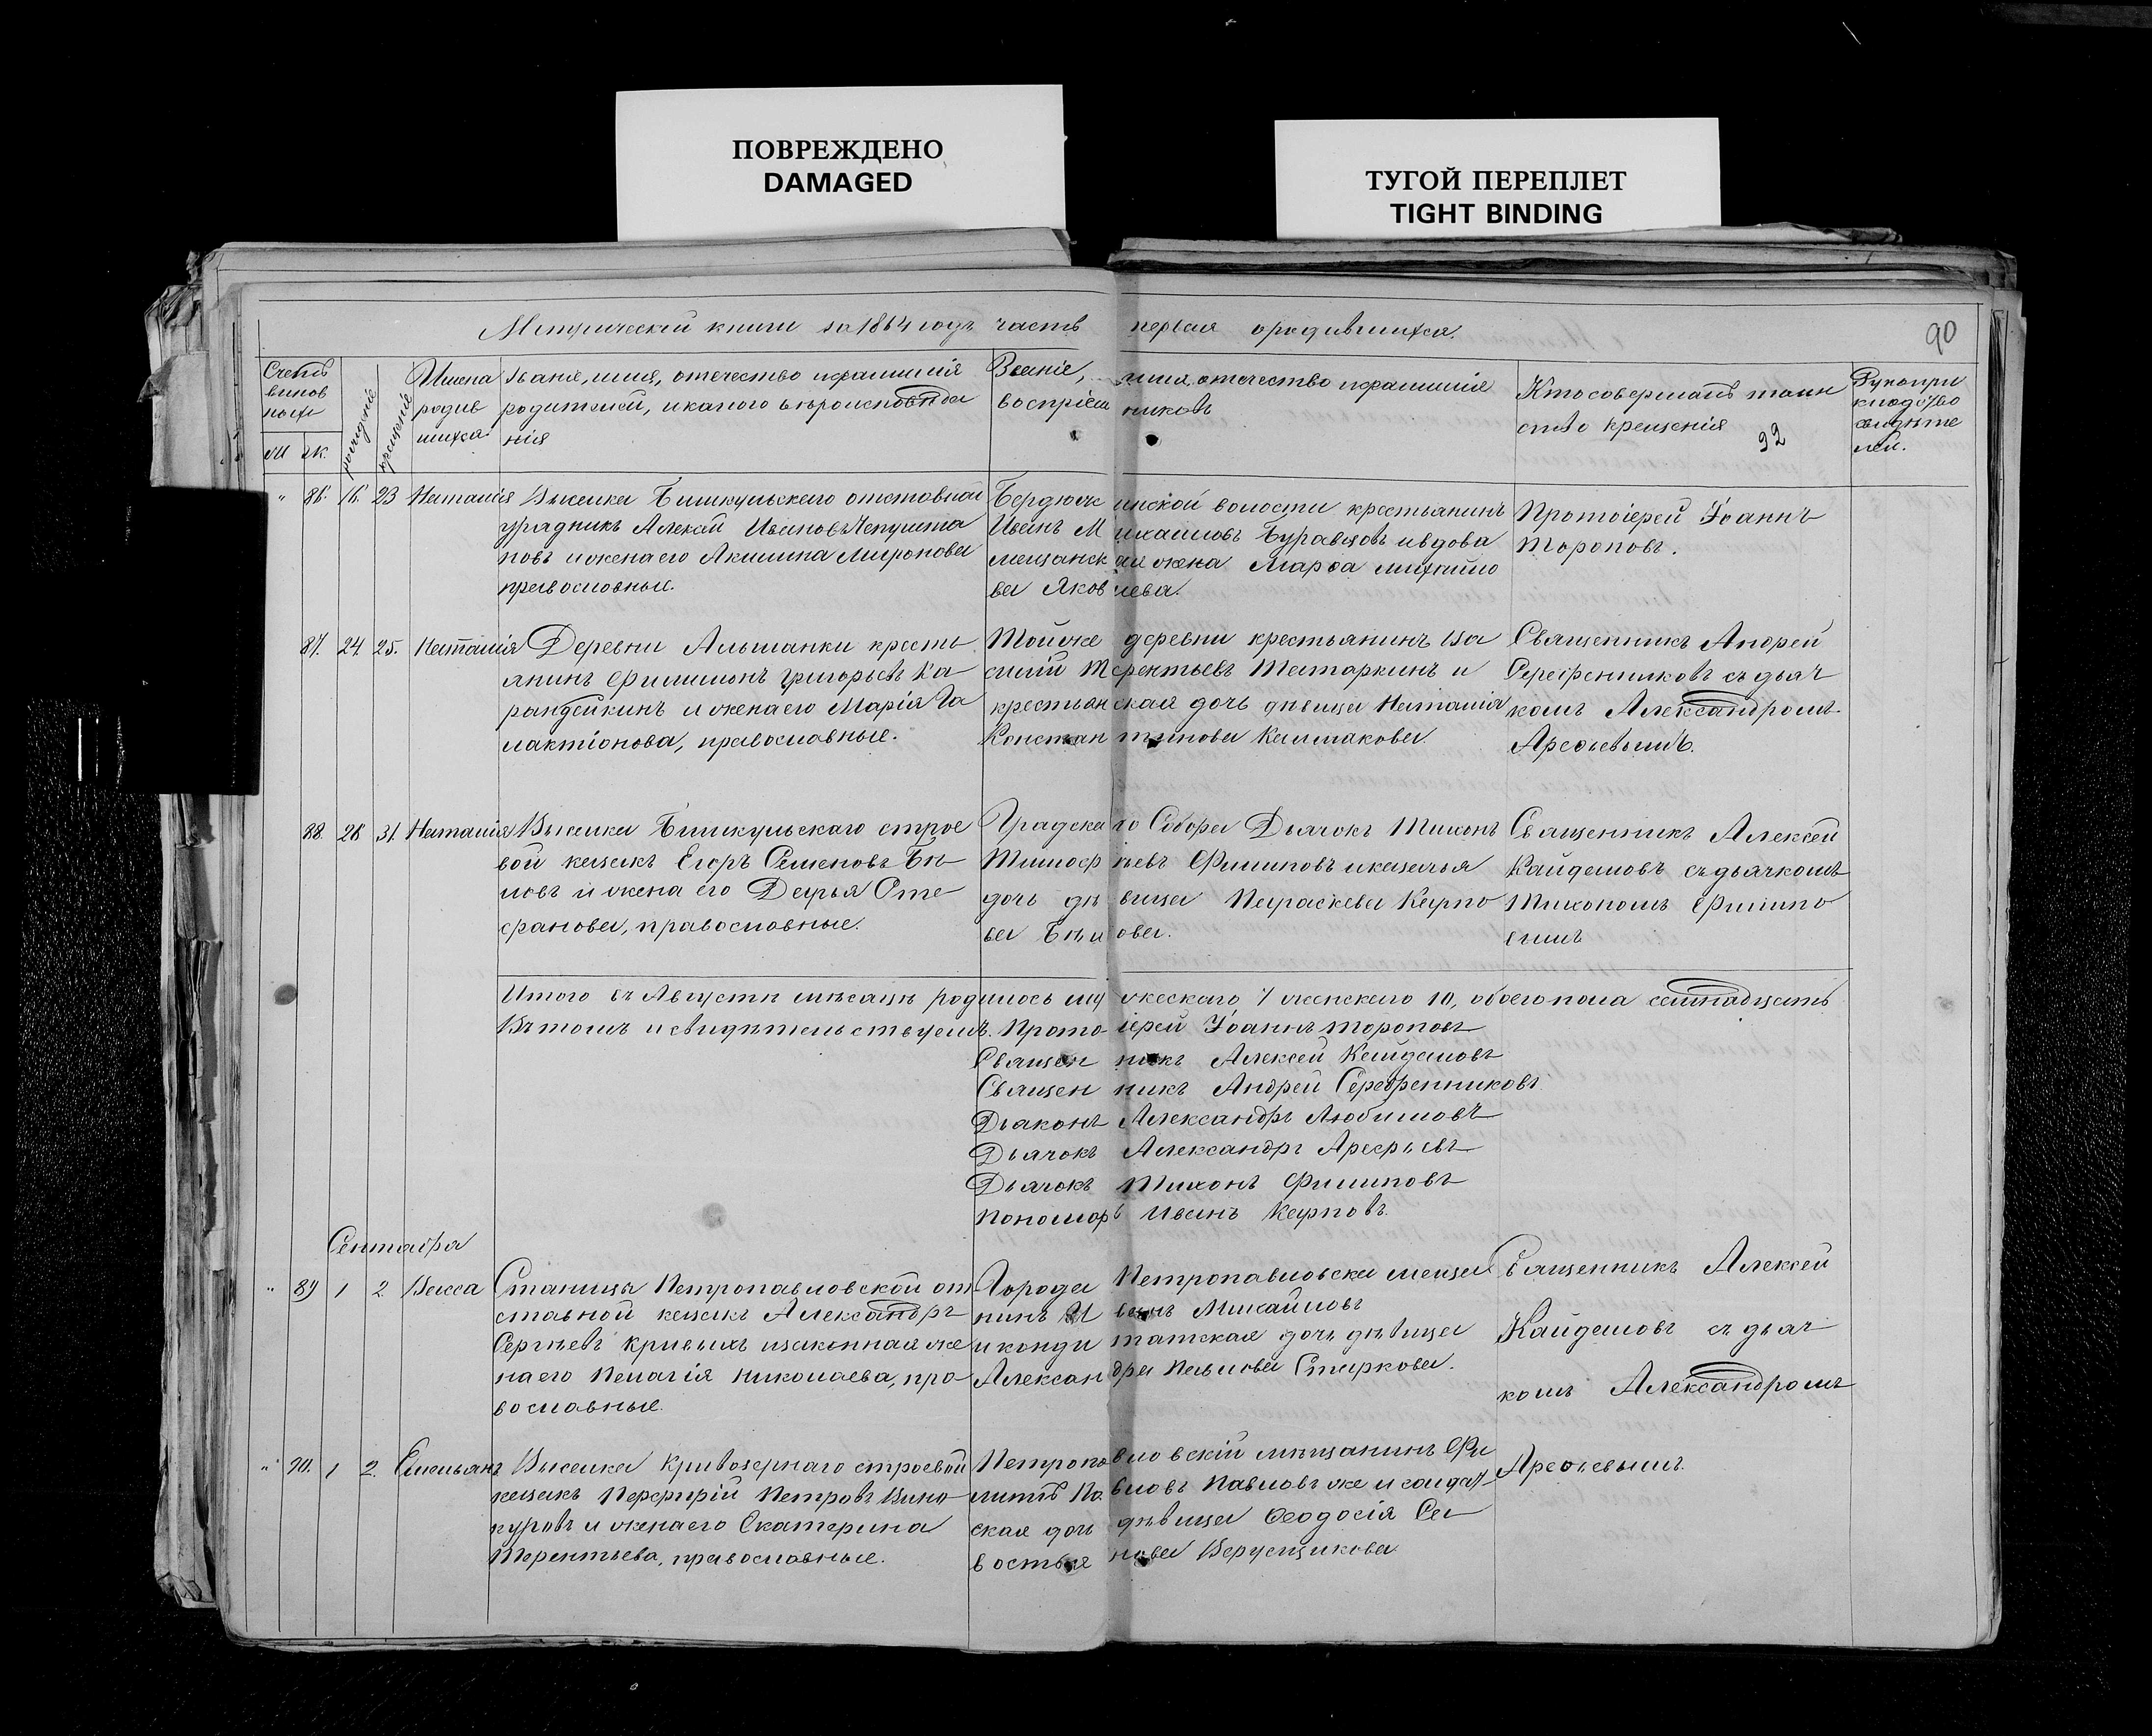 ПОВРЕЖДЕНО
DAMAGED
ТУГОЙ ПЕРЕПЛЕТ
TIGHT BINDING
Метрической книги за 1864 годъ часть первая о родившихся.
90
Счетъ
родив
шихся
Званіе, имя, отечество и фамилія
родителей, и какого вѣроисповѣда
нія
Званіе, имя, отечество и фамилія
воспріем никовъ
Кто совершалъ таин
ство крещенія
92
Рукопри
кладство
свидѣте
лей.
м ж.
рожденія
крещенія
Имена
" 86. 16. 23 Наталія Выселка Бишкульскаго отставной
урядникъ Алексѣй Ивановъ
повъ и жена его Акилина Миронова
православные.
Бердюж инской волости крестьянинъ
Иванъ М ихайловъ Буравцовъ и вдова
мещанск ая жена Марѳа михайло
ва Яков лева.
Протоіерей Іоаннъ
Тороповъ.
87. 24. 25. Наталія Деревни Ольшанки кресть
янинъ Филимонъ Григорьевъ Ка
рандейкинъ и жена его Марія Га
лактіонова, православные.
Той же деревни крестьянинъ Ва
силій Т ерентьевъ Татаркинъ и
крестьян ская дочь дѣвица Наталія
Констан тинова Калмакова
Священникъ Андрей
Серебренниковъ съ дьяч
комъ Александромъ
Арефьевымъ.
88. 28 31. Наталія Выселка Бишкульскаго строе
вой казакъ Егоръ Семеновъ Бѣ
ловъ и жена его Дарья Сте
фанова, православные.
Градска го Собора Дьячокъ Тихонъ
Тимоф ѣевъ Филиповъ и казачья
дочь дѣ вица Параскева Карпо
ва Бѣл ова.
Священникъ Алексѣй
Кайдаловъ съ дьячкомъ
Тихономъ Филипо
вымъ
Итого въ Августѣ мѣсяцѣ родилось му жескаго 7 женскаго 10, обоего пола семнадцать
Въ томъ и свидѣтельствуемъ. Прото іерей Іоаннъ Тороповъ
Священ никъ Алексѣй Кайдаловъ
Священ никъ Андрей Серебренниковъ
Дьяконъ Александръ Любимовъ
Дьячокъ Александръ Арефьевъ
Дьячокъ Тихонъ Филиповъ
Пономарь Иванъ Карповъ.
Сентября
" 89 1 2 Васса Станицы Петропавловской от
ставной казакъ Александръ
Сергѣевъ Кривыхъ и законная же
на его Пелагія Николаева, пра
вославные.
Города Петропавловска меща
нинъ И ванъ Михайловъ
и конди татская дочь дѣвица
Алексан дра Павлова Старкова.
Священникъ Алексѣй
Кайдаловъ съ дьяч
комъ Александромъ
Арефьевымъ.
" 90. 1 2. Емельянъ Выселка Кривозернаго строевой
казакъ Перфирій Петровъ Вино
куровъ и жена его Екатерина
Терентьева, православные.
Петропа вловскій мѣщанинъ Фи
липъ Па вловъ Павловъ же и солдат
ская дочь дѣвица Ѳеодосія Се
востья нова